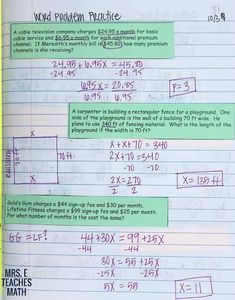 Word Problem Practice
31
10/29
A cable television company charges $24.95 a month for basic
cable service and $6.95 a month for each additional premium
channel. If Meredith's monthly bill is $45.80, how many premium
channels is she receiving?
24.95 + 6.95x = 45.80
-24.95 -24.95
6.95x = 20.85
6.95 6.95
P = 3
A carpenter is building a rectangular fence for a playground. One
side of the playground is the wall of a building 70 ft wide. He
plans to use 340 ft of fencing material. What is the length of the
playground if the width is 70 ft?
x
building
70ft
70ft.
x
x + x + 70 = 340
2x + 70 = 340
-70 -70
2x = 270
2 2
x = 135 ft
Gold's Gym charges a $44 sign-up fee and $30 per month.
Lifetime Fitness charges a $99 sign-up fee and $25 per month.
For what number of months is the cost the same?
GG = LF?
44 + 30x = 99 + 25x
-44 -44
30x = 55 + 25x
-25x -25x
5x = 55
x = 11
MRS. E
TEACHES
MATH